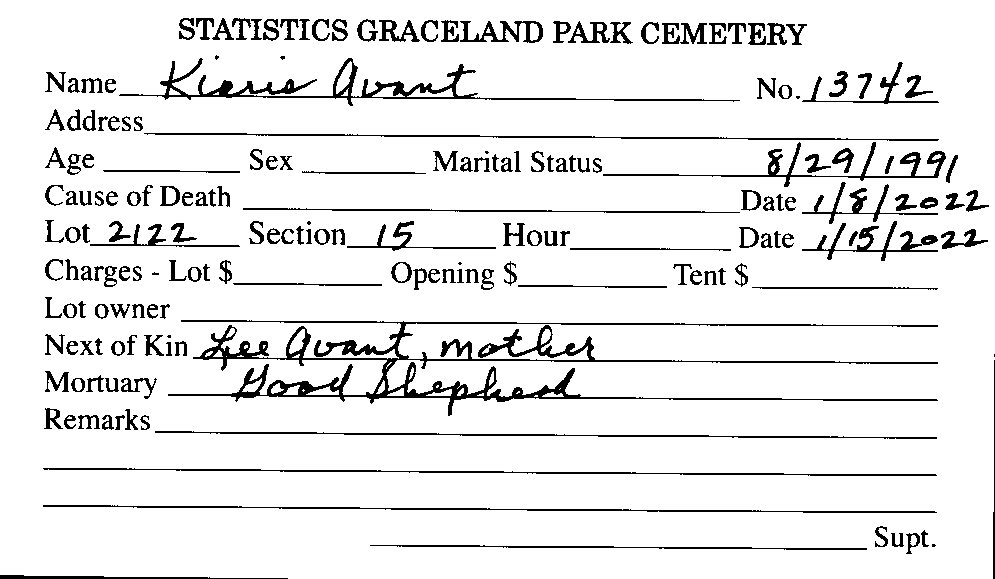 STATISTICS GRACELAND PARK CEMETERY
Name Kieris Avant No. 13742
Address
Age Sex Marital Status 8/29/1991
Cause of Death Date 1/8/2022
Lot 2122 Section 15 Hour Date 1/15/2022
Charges - Lot $ Opening $ Tent $
Lot owner
Next of Kin Lee Avant, mother
Mortuary Good Shepherd
Remarks
Supt.